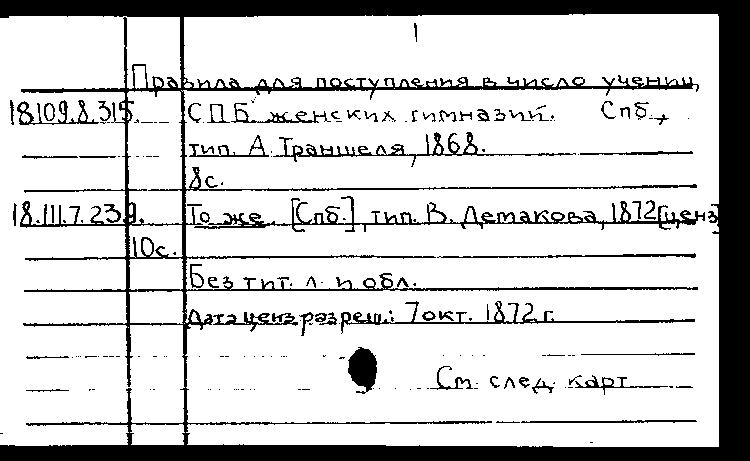 Правила для поступления в число учениц
18.109.8.315. СПБ женских гимназий. Спб.,
тип. А. Траншеля, 1868.
8с.
18.111.7.239. То же. [Спб.], тип. В. Демакова, 1872 [ценз]
10с.
Без тит. л. и обл.
Дата ценз. разреш.: 7 окт. 1872 г.
См. след. карт